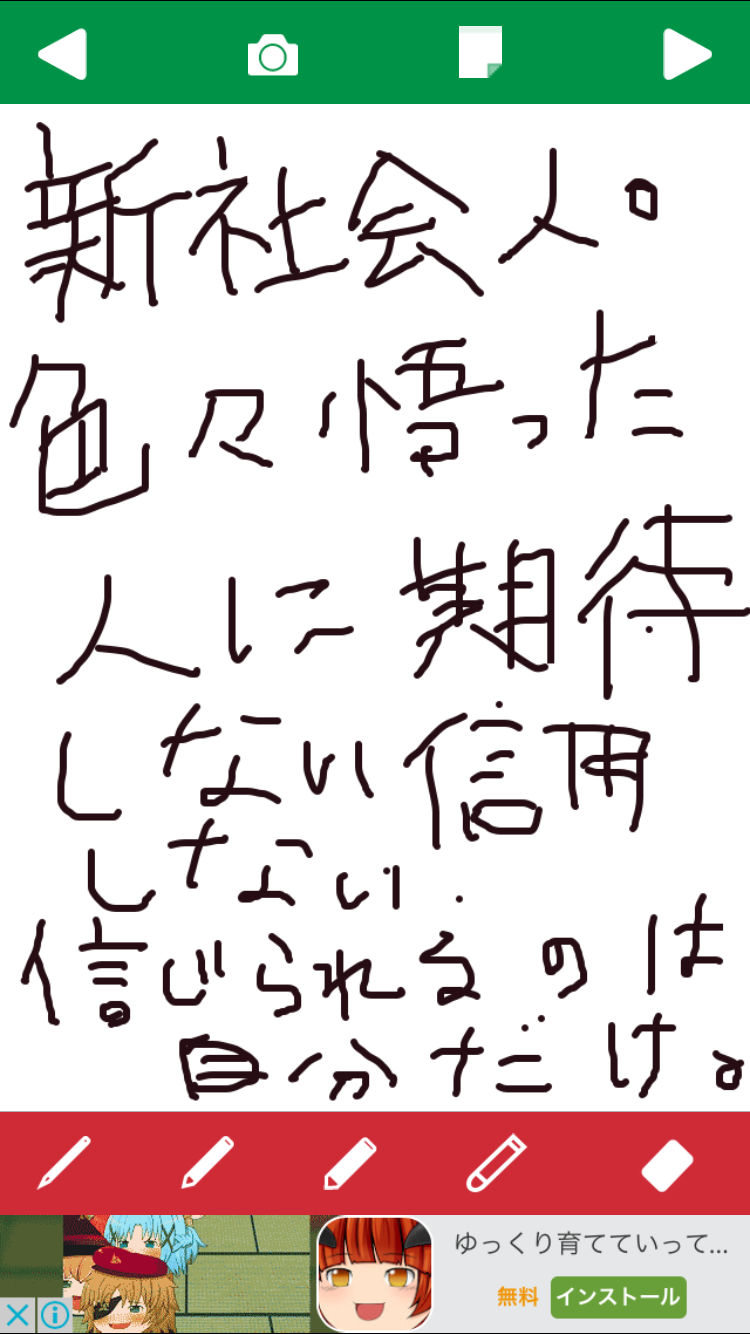 新社会人。
色々悟った
人に期待
しない信用
しない.
信じられるのは
自分だけ。
ゆっくり育てていって...
無料 インストール